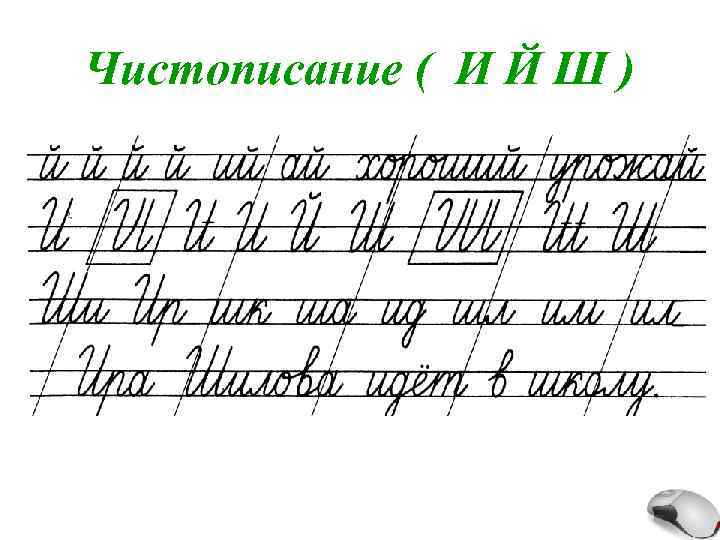 Чистописание ( И Й Ш )
й й й й ий ай хороший урожай
И И И И Й Ш Ш Ш Ш
Ши Ир шк ша ид шл им ил
Ира Шилова идёт в школу.